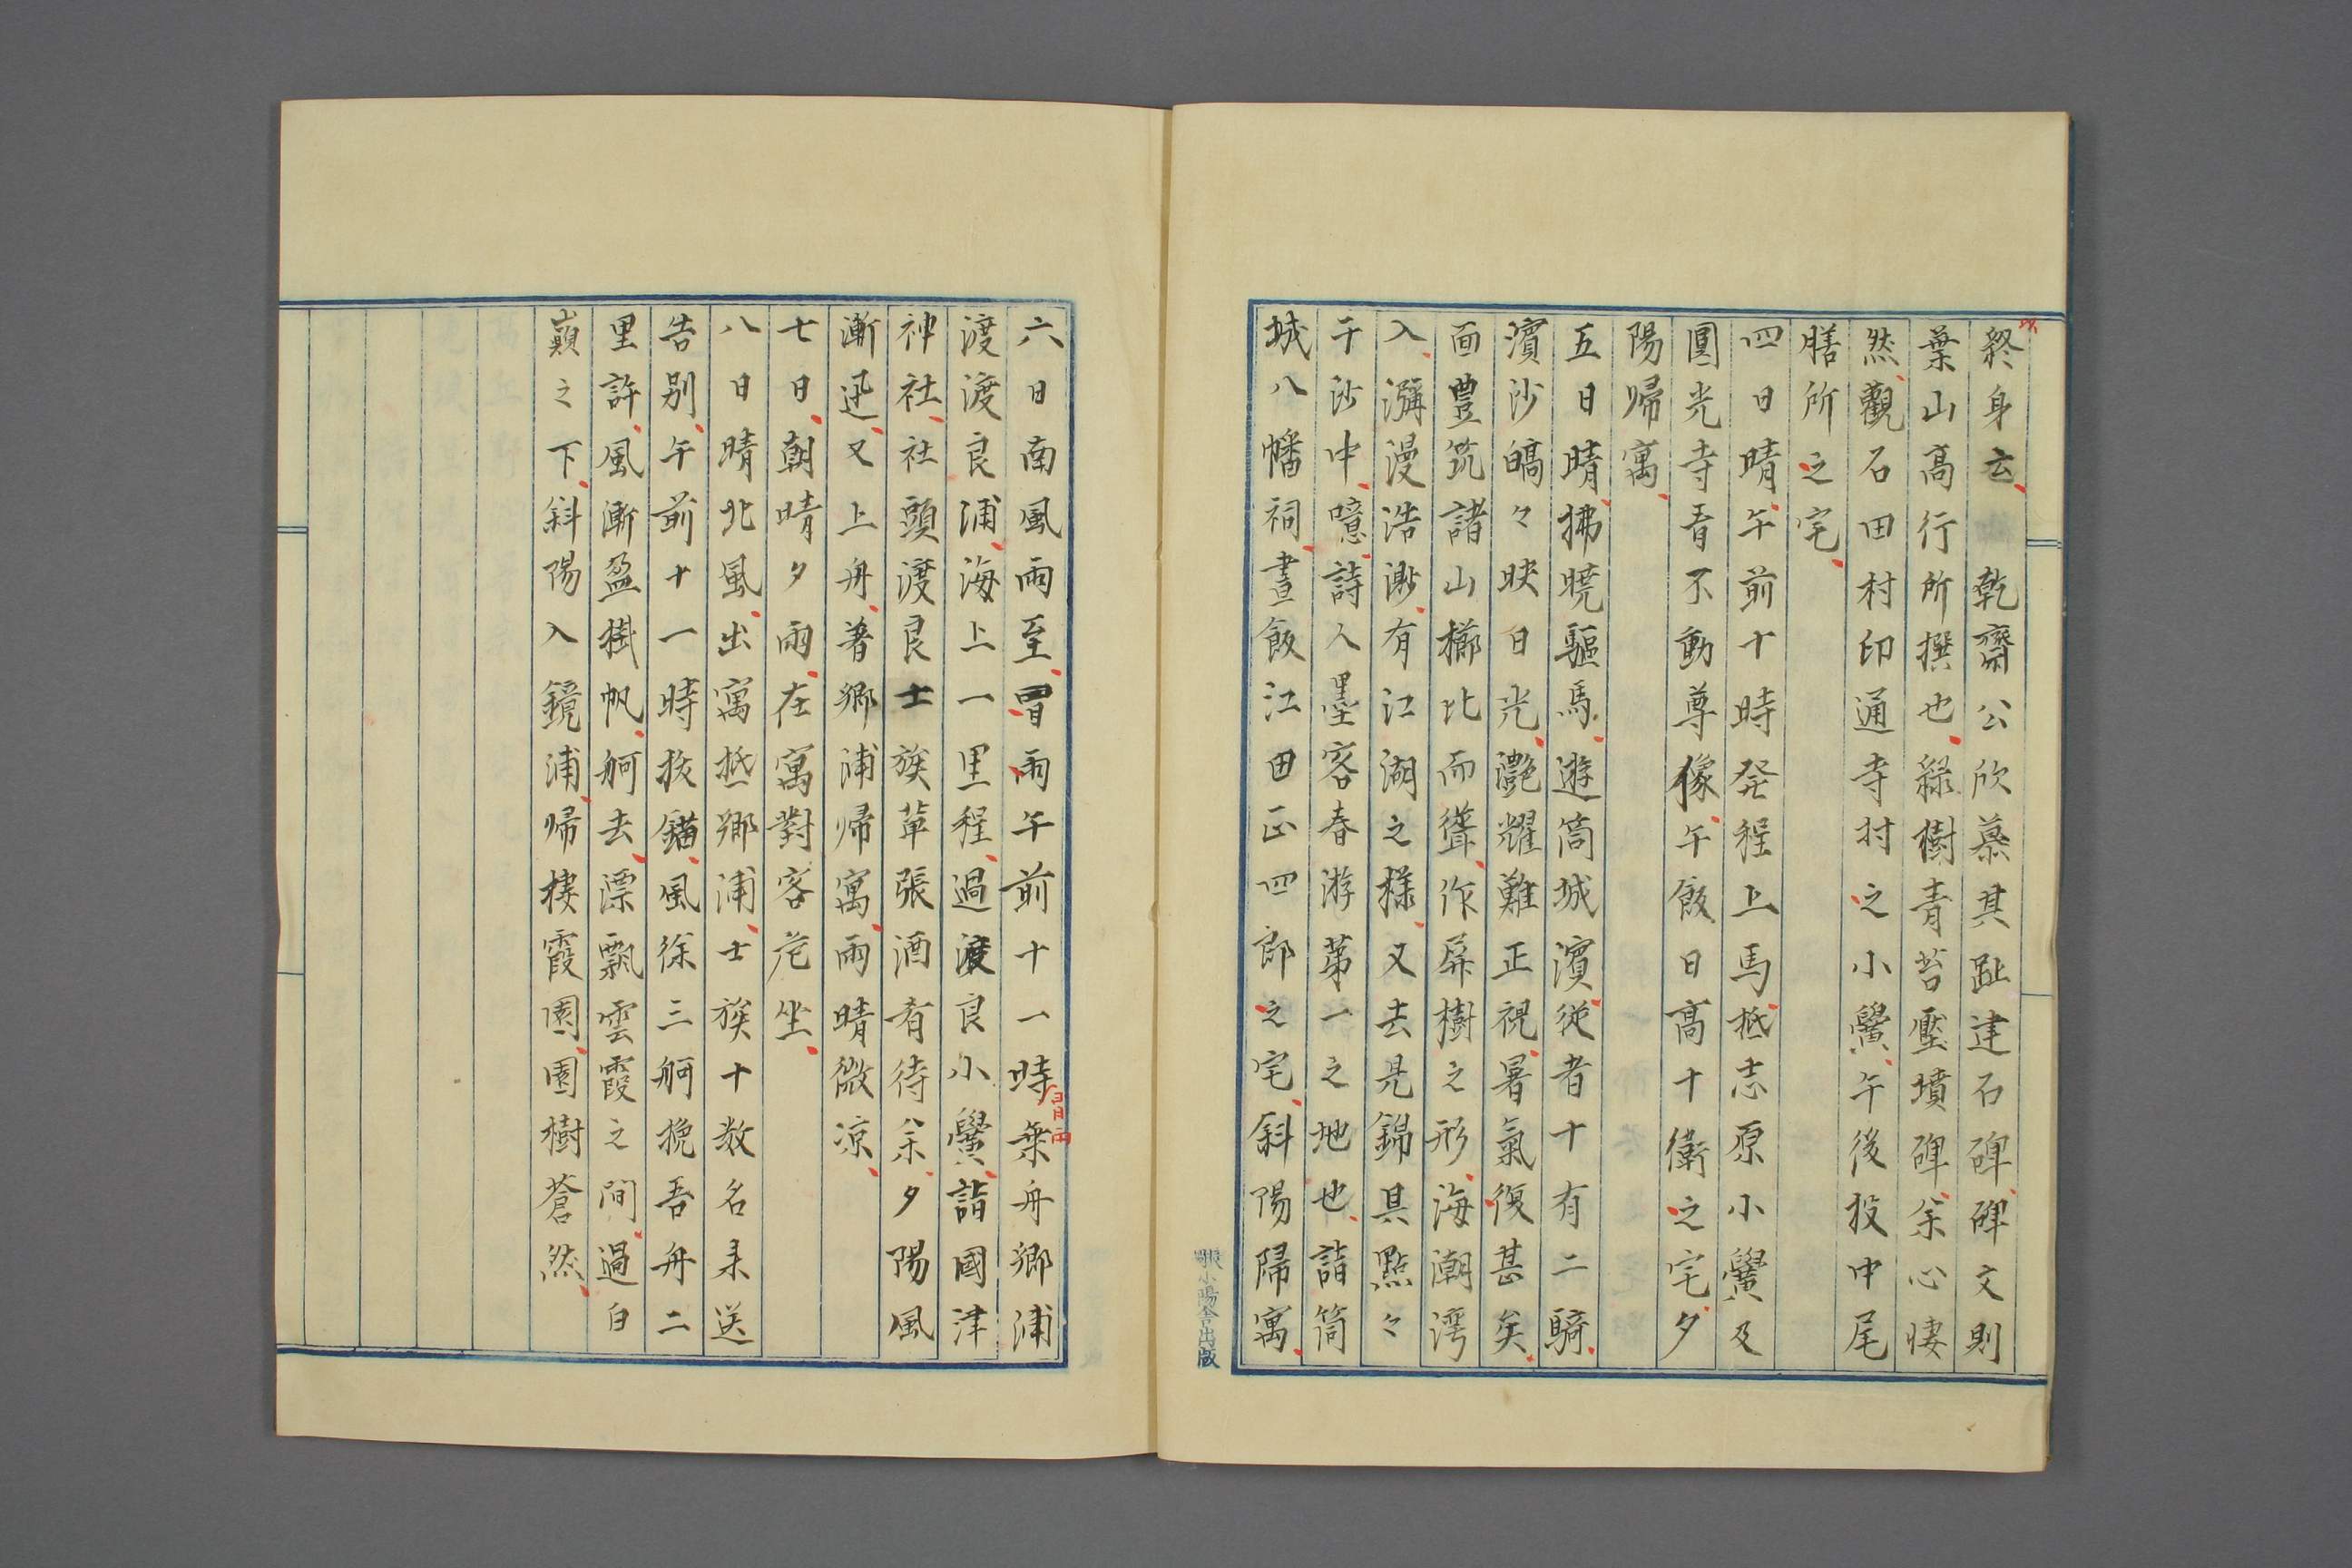 終身云乾齋公欣慕其趾建石碑碑文則
葉山高行所撰也緑樹青苔壓墳碑余心悽
然觀石田村印通寺村之小黌午後投中尾
膳所之宅
四日晴午前十時発程上馬抵志原小黌及
圓光寺看不動尊像午飯日高十衛之宅夕
陽帰寓
五日晴拂暁驅馬遊筒城濱從者十有二騎
濱沙皜々映日光灔耀難正視暑氣復甚矣
面豊筑諸山櫛比而聳作屏樹之形海潮湾
入瀰漫浩渺有江湖之様又去見錦具點々
于沙中噫詩人墨客春游第一之地也詣筒
城八幡祠晝飯江田正四郎之宅斜陽歸寓
小陽舎出版
六日南風雨至冒雨午前十一時冒雨乗舟郷浦
渡渡良浦海上一里程過渡良小黌詣國津
神社社頭渡良士族草張酒肴待余夕陽風
漸迅又上舟着郷浦帰寓雨晴微凉
七日朝晴夕雨在寓對客危坐
八日晴北風出寓抵郷浦士族十数名来送
告别午前十一時抜錨風徐三舸挽吾舟二
里許風漸盈掛帆舸去漂飄雲霞之間過白
巓之下斜陽入鏡浦帰棲霞園園樹蒼然